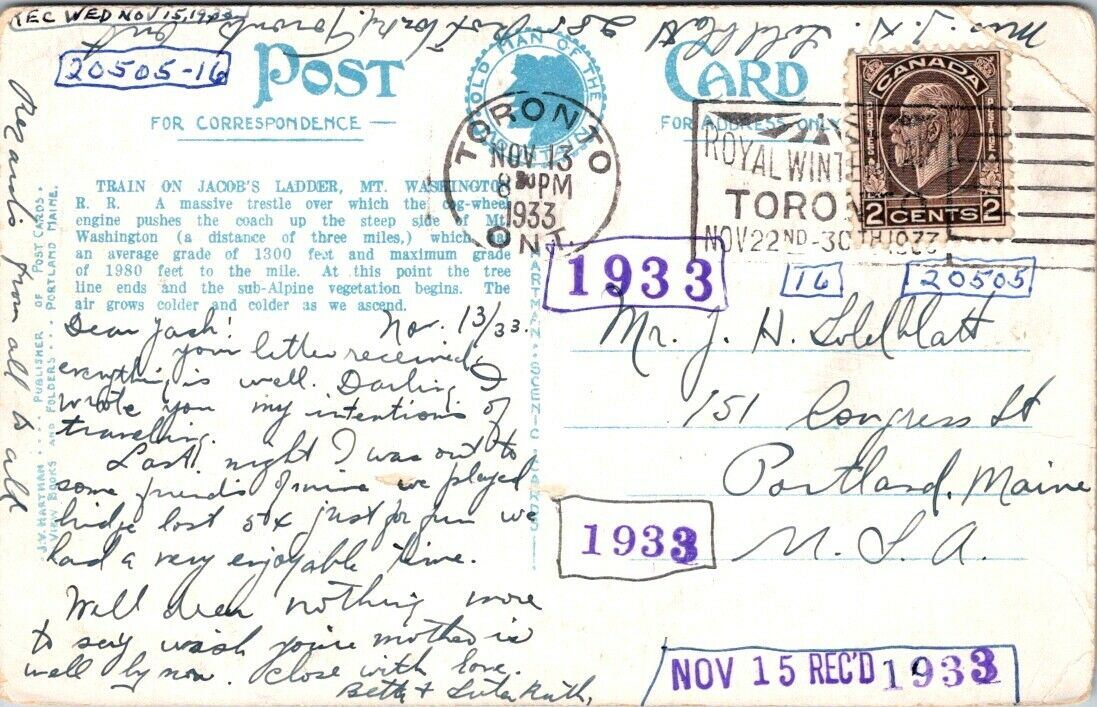 REC WED NOV 15, 1933
Mrs. J. H. Goldblatt
Toronto Ont
20505-16
POST CARD
OLD MAN OF THE
FOR CORRESPONDENCE
FOR ADDRESS ONLY
TORONTO
NOV 13
8 30 PM
1933
ONT.
ROYAL WINTE
TORON
NOV 22ND-30TH 1933
CANADA
POSTES
POSTAGE
2 CENTS 2
TRAIN ON JACOB'S LADDER, MT. WASHINGTON
R. R. A massive trestle over which the cog-wheel
engine pushes the coach up the steep side of Mt.
Washington (a distance of three miles,) which has
an average grade of 1300 feet and maximum grade
of 1980 feet to the mile. At this point the tree
line ends and the sub-Alpine vegetation begins. The
air grows colder and colder as we ascend.
J. V. HARTMAN .... PUBLISHER OF POST CARDS.
VIEW BOOKS AND FOLDERS ... PORTLAND MAINE.
HARTMAN-SCENIC-CARDS
Regards from all to all
Dear Jack! Nov. 13/33.
your letter received,
everything is well. Darling I
wrote you my intentions of
traveling.
Last night I was out to
some friends of mine we played
bridge lost 5¢ just for fun we
had a very enjoyable time.
Well dear nothing more
to say wish you're mother is
well by now. Close with love.
Betty + Ruth,
1933
16
20505
Mr. J. H. Goldblatt
151 Congress St
Portland, Maine
U. S. A.
1933
NOV 15 REC'D 1933